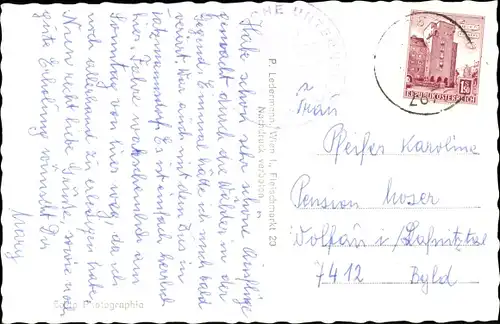 Habe schon sehr schöne Ausflüge
gemacht durch die Wälder in der
Gegend. Einmal hätte ich mich bald
verirrt. War auch mit dem Bus in
Es ist einfach herrlich
hier. Fahre wahrscheinlich am
Sonntag von hier weg, da ich
noch allerhand zu erledigen habe.
Nun recht liebe Grüße sowie noch
gute Erholung wünscht Dir
Mary
Echte Photographie
P. Ledermann, Wien I., Fleischmarkt 20
Nachdruck verboten
REPUBLIK ÖSTERREICH
Frau
Pfeifer Karoline
Pension Moser
Wolfau i/Lafnitztal
7412 Bgld